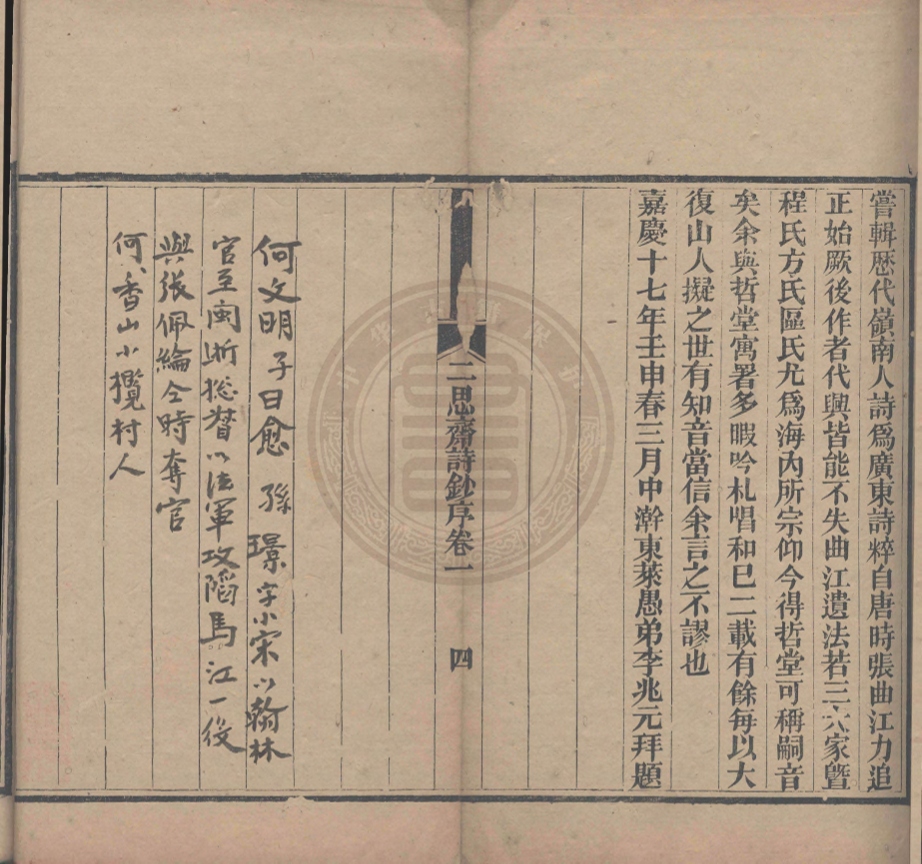 嘗輯歷代嶺南人詩爲廣東詩粹自唐時張曲江力追
正始厥後作者代興皆能不失曲江遺法若三六家曁
程氏方氏區氏尤爲海內所宗仰今得哲堂可稱嗣音
矣余與哲堂寓署多暇吟札唱和已二載有餘每以大
復山人擬之世有知音當信余言之不謬也
嘉慶十七年壬申春三月中澣東萊愚弟李兆元拜題
二思齋詩鈔序卷一 四
何文明子曰愈 孫璟字小宋以翰林
官至閩浙總督以法軍攻陷馬江一役
與張佩綸仝時奪官
何香山小欖村人